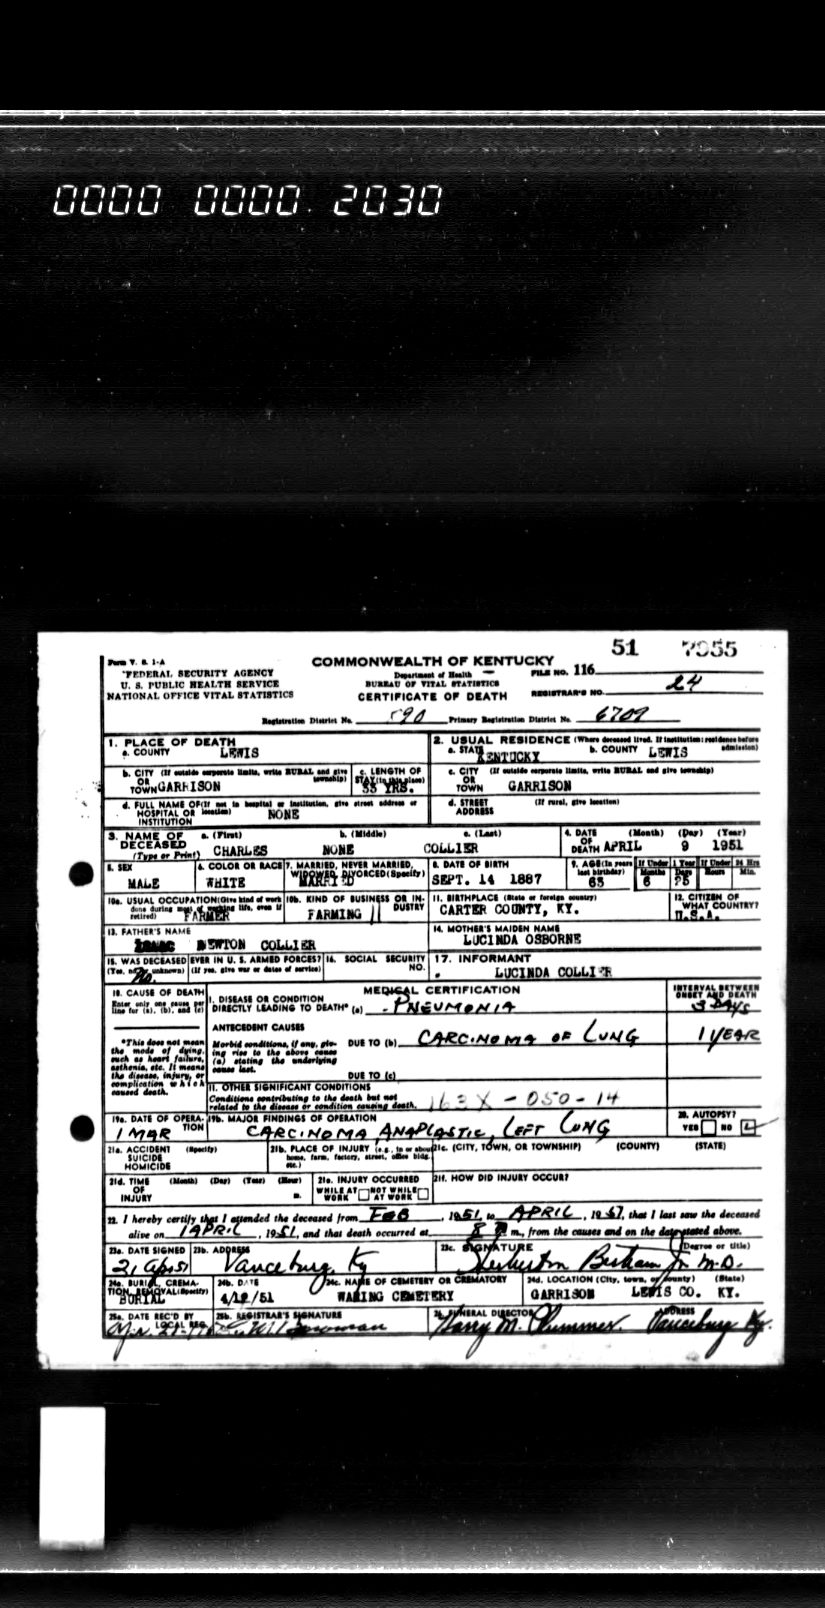 0000 0000 2030
51 7955
Form V. S. 1-A
FEDERAL SECURITY AGENCY
U. S. PUBLIC HEALTH SERVICE
NATIONAL OFFICE VITAL STATISTICS
COMMONWEALTH OF KENTUCKY
Department of Health
BUREAU OF VITAL STATISTICS
CERTIFICATE OF DEATH
FILE NO. 116
REGISTRAR'S NO. 24
Registration District No. 590 Primary Registration District No. 6709
1. PLACE OF DEATH
a. COUNTY LEWIS
2. USUAL RESIDENCE (Where deceased lived. If institution: residence before admission)
a. STATE KENTUCKY b. COUNTY LEWIS
b. CITY (If outside corporate limits, write RURAL and give township) OR TOWN GARRISON
c. LENGTH OF STAY (in this place) 55 YRS.
c. CITY (If outside corporate limits, write RURAL and give township) OR TOWN GARRISON
d. FULL NAME OF (If not in hospital or institution, give street address or location) HOSPITAL OR INSTITUTION NONE
d. STREET ADDRESS (If rural, give location)
3. NAME OF DECEASED (Type or Print) a. (First) CHARLES b. (Middle) NONE c. (Last) COLLIER
4. DATE OF DEATH (Month) (Day) (Year) APRIL 9 1951
5. SEX MALE
6. COLOR OR RACE WHITE
7. MARRIED, NEVER MARRIED, WIDOWED, DIVORCED (Specify) MARRIED
8. DATE OF BIRTH SEPT. 14 1887
9. AGE (In years last birthday) 63 If Under 1 Year Months 6 Days 25 If Under 24 Hrs Hours Min.
10a. USUAL OCCUPATION (Give kind of work done during most of working life, even if retired) FARMER
10b. KIND OF BUSINESS OR INDUSTRY FARMING
11. BIRTHPLACE (State or foreign country) CARTER COUNTY, KY.
12. CITIZEN OF WHAT COUNTRY? U.S.A.
13. FATHER'S NAME NEWTON COLLIER
14. MOTHER'S MAIDEN NAME LUCINDA OSBORNE
15. WAS DECEASED EVER IN U. S. ARMED FORCES? (Yes, no, unknown) (If yes, give war or dates of service) No.
16. SOCIAL SECURITY NO.
17. INFORMANT LUCINDA COLLIER
18. CAUSE OF DEATH
Enter only one cause per line for (a), (b), and (c)
*This does not mean the mode of dying, such as heart failure, asthenia, etc. It means the disease, injury, or complication which caused death.
MEDICAL CERTIFICATION
INTERVAL BETWEEN ONSET AND DEATH
I. DISEASE OR CONDITION DIRECTLY LEADING TO DEATH* (a) PNEUMONIA 3 DAYS
ANTECEDENT CAUSES
Morbid conditions, if any, giving rise to the above cause (a) stating the underlying cause last.
DUE TO (b) CARCINOMA OF LUNG 1 YEAR
DUE TO (c)
II. OTHER SIGNIFICANT CONDITIONS
Conditions contributing to the death but not related to the disease or condition causing death.
163X - 050 - 14
19a. DATE OF OPERATION 1 MAR
19b. MAJOR FINDINGS OF OPERATION CARCINOMA ANAPLASTIC, LEFT LUNG
20. AUTOPSY? YES NO
21a. ACCIDENT SUICIDE HOMICIDE (Specify)
21b. PLACE OF INJURY (e.g., in or about home, farm, factory, street, office bldg., etc.)
21c. (CITY, TOWN, OR TOWNSHIP) (COUNTY) (STATE)
21d. TIME OF INJURY (Month) (Day) (Year) (Hour) m.
21e. INJURY OCCURRED WHILE AT WORK NOT WHILE AT WORK
21f. HOW DID INJURY OCCUR?
22. I hereby certify that I attended the deceased from FEB, 1951, to APRIL, 1951, that I last saw the deceased
alive on 1 APRIL, 1951, and that death occurred at 8 P m., from the causes and on the date stated above.
23a. DATE SIGNED 21 Apr 51
23b. ADDRESS Vanceburg, Ky
23c. SIGNATURE (Degree or title) Jr M.D.
24a. BURIAL, CREMATION, REMOVAL (Specify) BURIAL
24b. DATE 4/12/51
24c. NAME OF CEMETERY OR CREMATORY WARING CEMETERY
24d. LOCATION (City, town, or county) (State) GARRISON LEWIS CO. KY.
25a. DATE REC'D BY LOCAL REG.
25b. REGISTRAR'S SIGNATURE
26. FUNERAL DIRECTOR Harry M. Plummer. ADDRESS Vanceburg Ky.